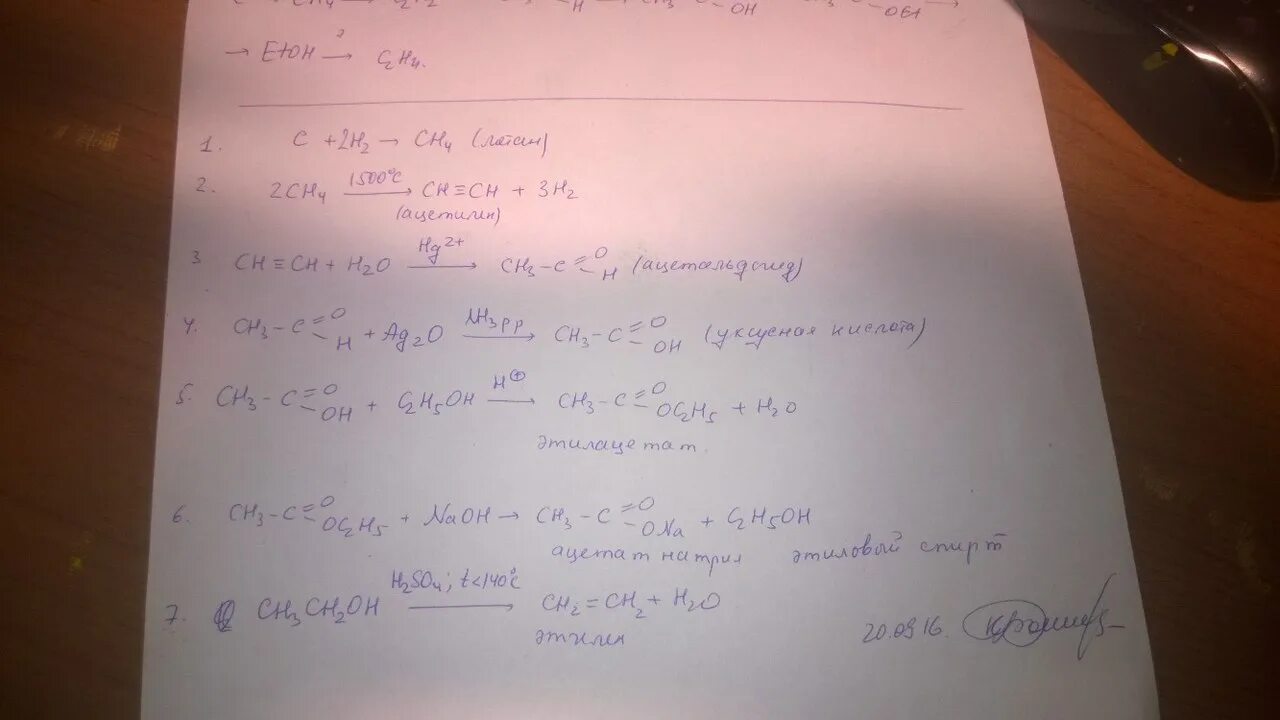 CH₄ → C₂H₂ H CH₃ OH OEt →
→ EtOH → C₂H₄.
1. C + 2H₂ → CH₄ (метан)
2. 2CH₄ 1500°C → CH≡CH + 3H₂
(ацетилен)
3 CH≡CH + H₂O Hg²⁺ → CH₃-C=O-H (ацетальдегид)
4. CH₃-C=O-H + Ag₂O NH₃ рр → CH₃-C=O-OH (уксусная кислота)
5. CH₃-C=O-OH + C₂H₅OH H⊕ → CH₃-C=O-OC₂H₅ + H₂O
этилацетат.
6. CH₃-C=O-OC₂H₅ + NaOH → CH₃-C=O-ONa + C₂H₅OH
ацетат натрия этиловый спирт
7. CH₃CH₂OH H₂SO₄; t<140°C → CH₂=CH₂ + H₂O
этилен
20.09.16.